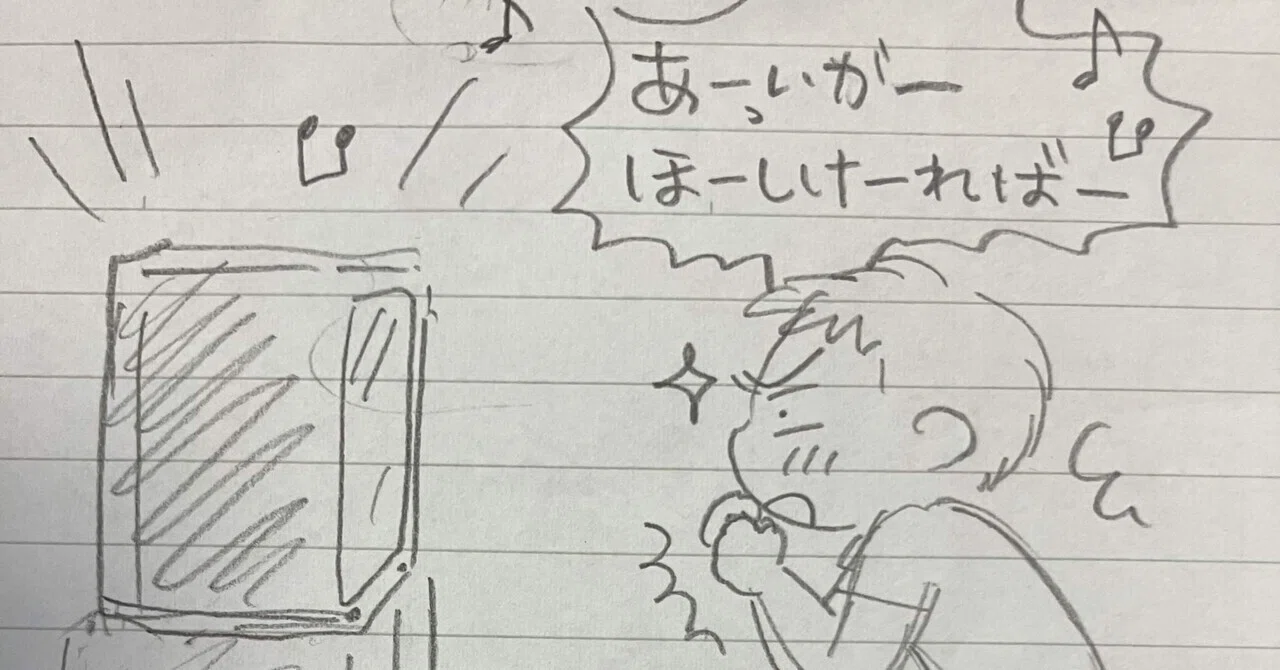 あーいがー
ほーしけーればー